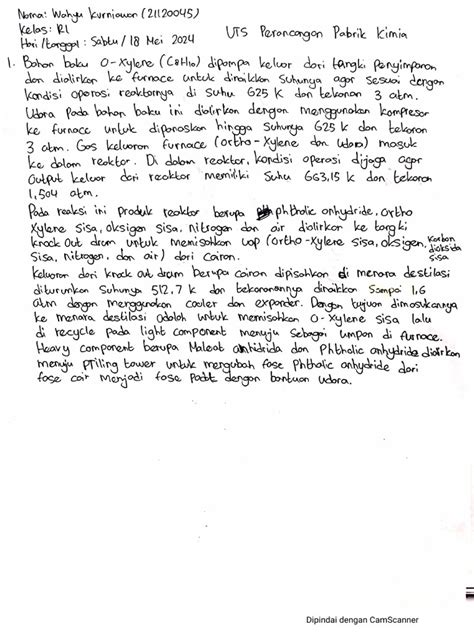 Nama: Wahyu Kurniawan (21120045)
Kelas: R1
Hari/tanggal: Sabtu/18 Mei 2024
UTS Perancangan Pabrik Kimia
1. Bahan baku O-Xylene (C8H10) dipompa keluar dari tangki penyimpanan
dan dialirkan ke furnace untuk dinaikkan suhunya agar sesuai dengan
kondisi operasi reaktornya di suhu 625 K dan tekanan 3 atm.
Udara pada bahan baku ini dialirkan dengan menggunakan kompresor
ke furnace untuk dipanaskan hingga suhunya 625 K dan tekanan
3 atm. Gas keluaran furnace (ortho-Xylene dan Udara) masuk
ke dalam reaktor. Di dalam reaktor, kondisi operasi dijaga agar
Output keluar dari reaktor memiliki suhu 663,15 K dan tekanan
1,504 atm.
Pada reaksi ini produk reaktor berupa phthalic anhydride, ortho
Xylene sisa, oksigen sisa, nitrogen dan air dialirkan ke tangki
knock out drum untuk memisahkan uap (ortho-Xylene sisa, oksigen, karbon dioksida sisa
sisa, nitrogen, dan air) dari cairan.
Keluaran dari knock out drum berupa cairan dipisahkan di menara destilasi
diturunkan suhunya 512,7 K dan tekanannya dinaikkan sampai 1,6
atm dengan menggunakan cooler dan expander. Dengan tujuan dimasukannya
ke menara destilasi adalah untuk memisahkan O-Xylene sisa lalu
di recycle pada light component menuju sebagai umpan di furnace.
Heavy component berupa Maleat anhidrida dan Phthalic anhydride dialirkan
menuju prilling tower untuk mengubah fase Phthalic anhydride dari
fase cair menjadi fase padat dengan bantuan udara.
Dipindai dengan CamScanner